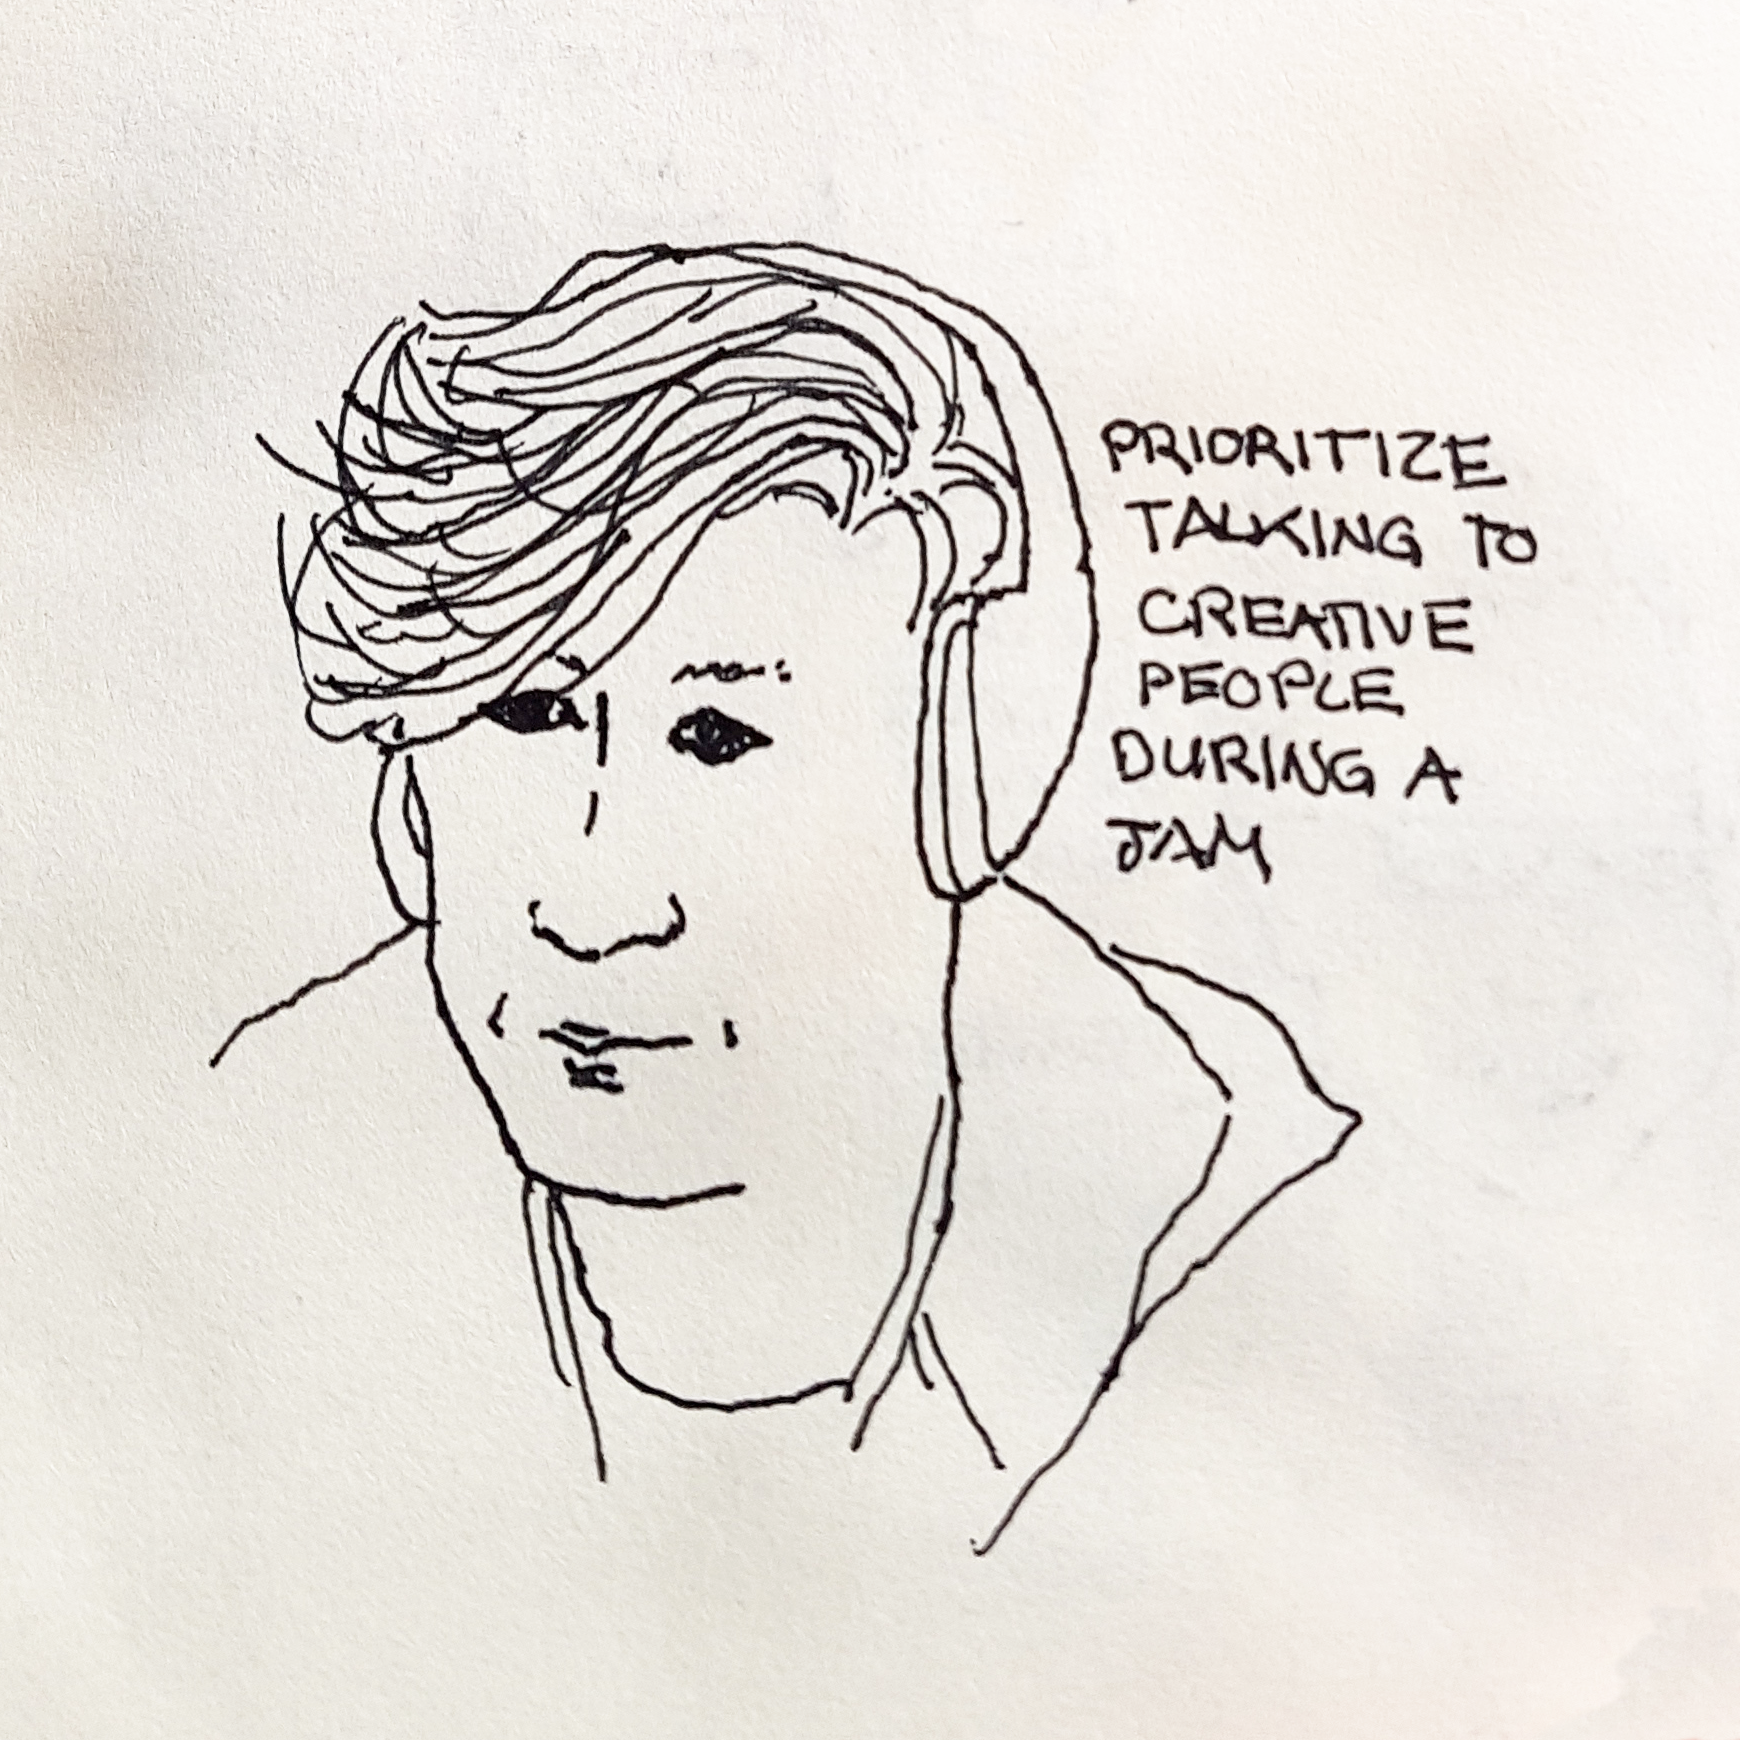 PRIORITIZE
TALKING TO
CREATIVE
PEOPLE
DURING A
JAM